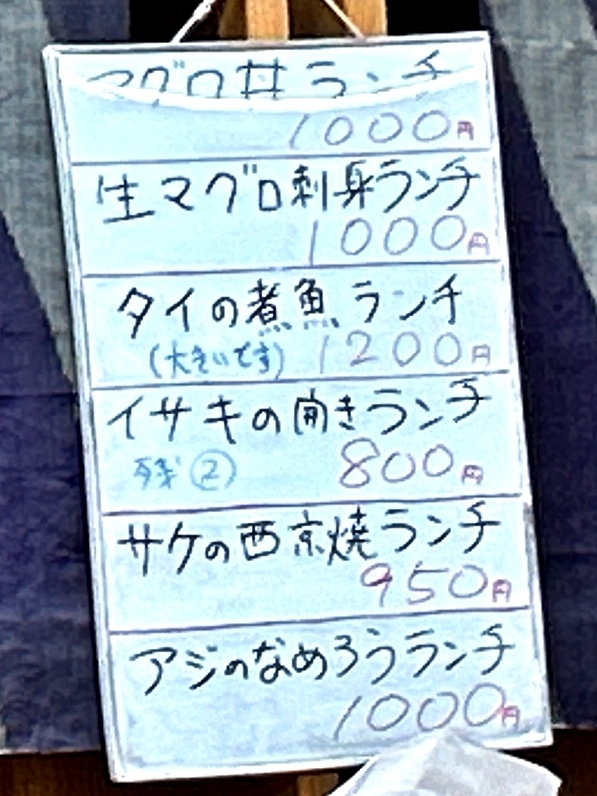 マグロ丼ランチ
1000円
生マグロ刺身ランチ
1000円
タイの煮魚ランチ
(大きいです) 1200円
イサキの開きランチ
残② 800円
サケの西京焼ランチ
950円
アジのなめろうランチ
1000円